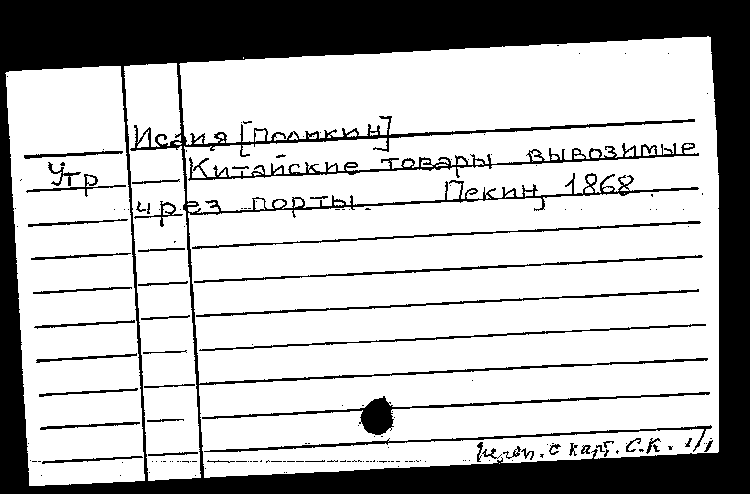 Исаия [Поликин]
Утр
Китайские товары вывозимые
чрез порты. Пекин, 1868.
переп. с карт. С.К.